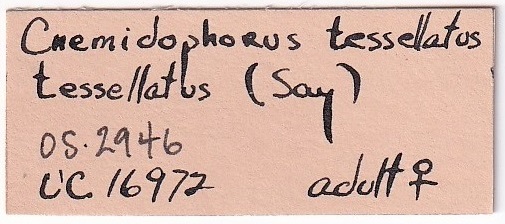 Cnemidophorus tessellatus
tessellatus (Say)
OS.2946
UC 16972 adult ♀